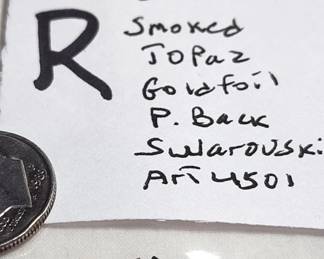 R
Smoked
Topaz
Goldfoil
P. Back
Swarovski
Art 4501